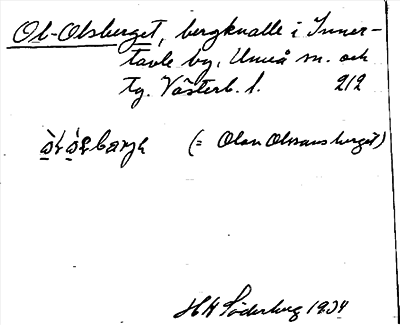 Ol-Olsberget, bergknalle i Inner-
tavle by, Umeå sn. och
tg. Västerb. l. 212
(= Olan Olssans berget)
HA Söderberg 1934